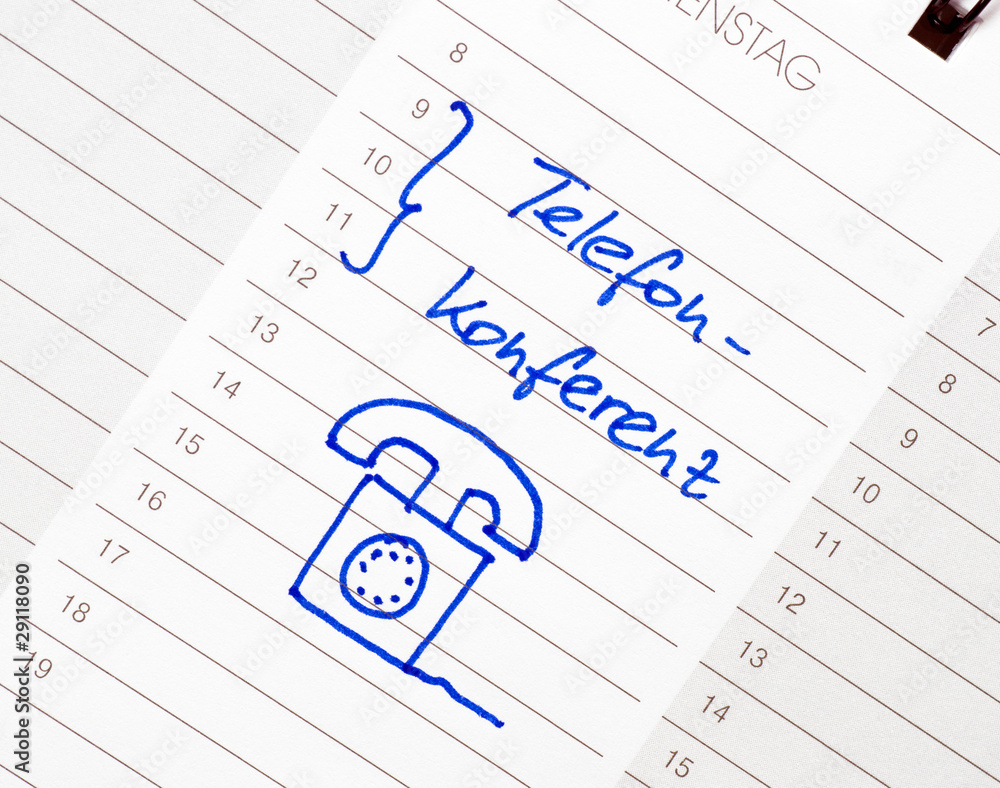 IENSTAG
8
9
10
11
12
13
14
15
16
17
18
19
Telefon-
Konferenz
7
8
9
10
11
12
13
14
15
Adobe Stock | #29118090